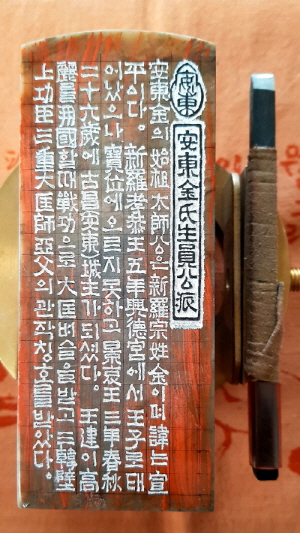 安東
安東金氏生員公派
安東金의 始祖太師公은 新羅宗姓金이며 諱는 宣
平이다. 新羅孝恭王五年興德宮에서 王子로 태
어났으나 寶位에 오르지 못하고 景哀王 三年春秋
二十六歲에 古昌(安東)城主가 되셨다. 王建이 高
麗를 開國할때 戰功으로 大匡벼슬을 받고 三韓壁
上功臣三重大匡師亞父의 관작칭호를 받았다.